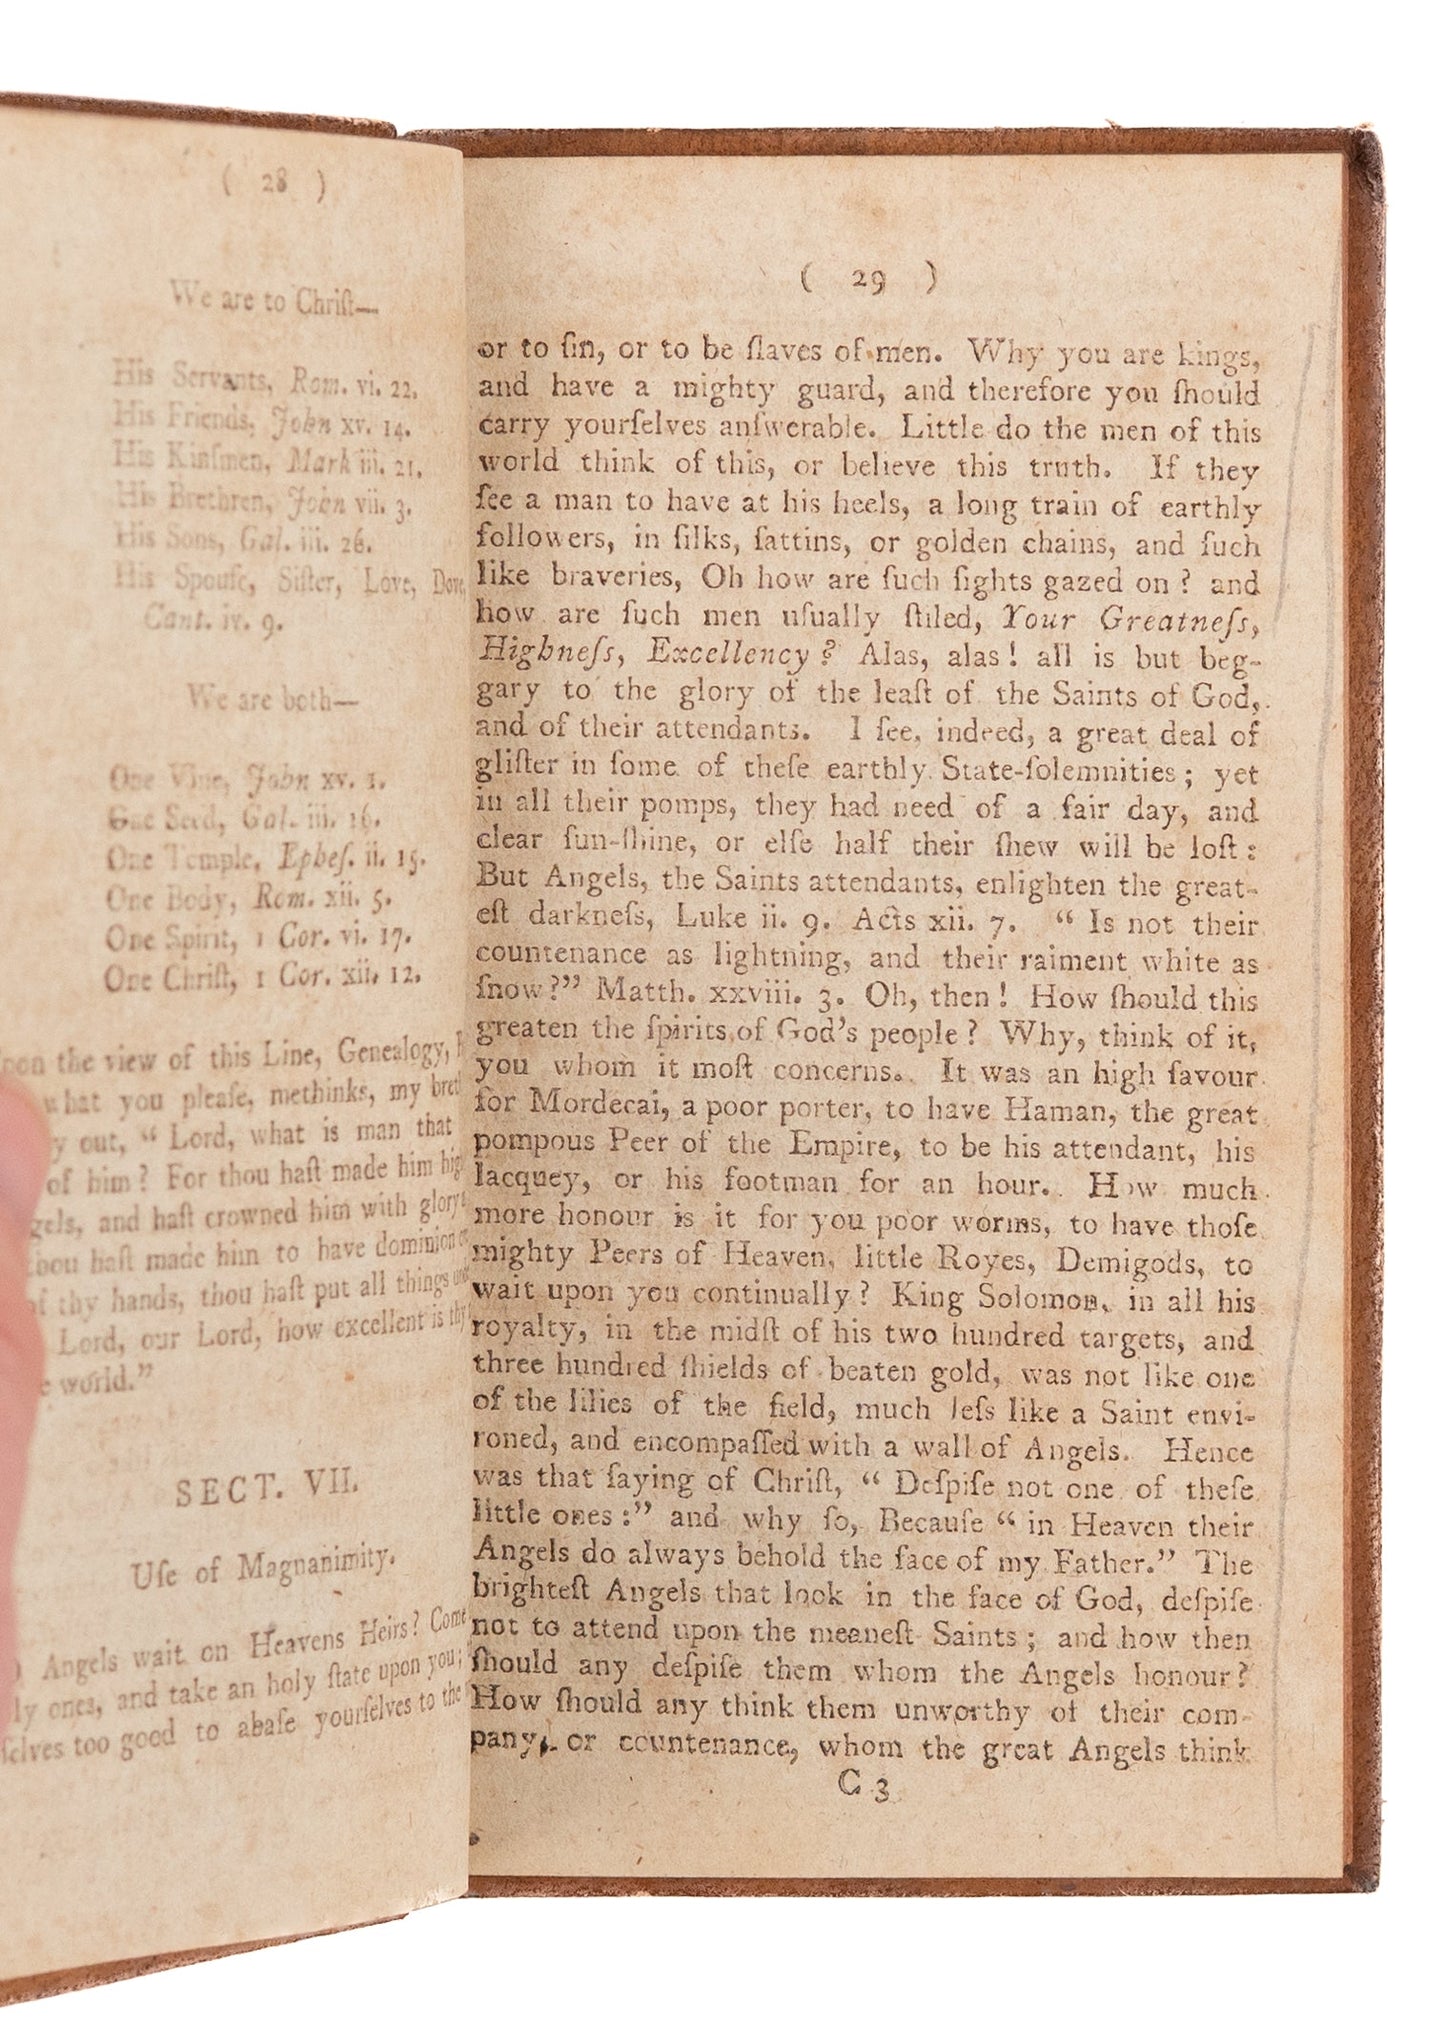 ( 28 )
We are to Chriſt—
His Servants, Rom. vi. 22.
His Friends, John xv. 14.
His Kinſmen, Mark iii. 21.
His Brethren, John vii. 3.
His Sons, Gal. iii. 26.
His Spouſe, Siſter, Love, Dove,
Cant. iv. 9.
We are both—
One Vine, John xv. 1.
One Seed, Gal. iii. 16.
One Temple, Epheſ. ii. 15.
One Body, Rom. xii. 5.
One Spirit, 1 Cor. vi. 17.
One Chriſt, 1 Cor. xii. 12.
the view of this Line, Genealogy,
what you pleaſe, methinks, my
out, “ Lord, what is man that
of him? For thou haſt made him
and haſt crowned him with glory
haſt made him to have dominion
of thy hands, thou haſt put all things
Lord, our Lord, how excellent is
world.”
SECT. VII.
Uſe of Magnanimity.
Angels wait on Heavens Heirs? Come
ones, and take an holy ſtate upon you;
too good to abaſe yourſelves to the
( 29 )
or to ſin, or to be ſlaves of men. Why you are kings,
and have a mighty guard, and therefore you ſhould
carry yourſelves anſwerable. Little do the men of this
world think of this, or believe this truth. If they
ſee a man to have at his heels, a long train of earthly
followers, in ſilks, ſattins, or golden chains, and ſuch
like braveries, Oh how are ſuch ſights gazed on? and
how are ſuch men uſually ſtiled, Your Greatneſs,
Highneſs, Excellency? Alas, alas! all is but beg-
gary to the glory of the leaſt of the Saints of God,
and of their attendants. I ſee, indeed, a great deal of
gliſter in ſome of theſe earthly State-ſolemnities; yet
in all their pomps, they had need of a fair day, and
clear ſun-ſhine, or elſe half their ſhew will be loſt:
But Angels, the Saints attendants, enlighten the great-
eſt darkneſs, Luke ii. 9. Acts xii. 7. “ Is not their
countenance as lightning, and their raiment white as
ſnow?” Matth. xxviii. 3. Oh, then! How ſhould this
greaten the ſpirits of God's people? Why, think of it,
you whom it moſt concerns. It was an high favour
for Mordecai, a poor porter, to have Haman, the great
pompous Peer of the Empire, to be his attendant, his
lacquey, or his footman for an hour. How much
more honour is it for you poor worms, to have thoſe
mighty Peers of Heaven, little Royes, Demigods, to
wait upon you continually? King Solomon, in all his
royalty, in the midſt of his two hundred targets, and
three hundred ſhields of beaten gold, was not like one
of the lilies of the field, much leſs like a Saint envi-
roned, and encompaſſed with a wall of Angels. Hence
was that ſaying of Chriſt, “ Deſpiſe not one of theſe
little ones:” and why ſo, Becauſe “ in Heaven their
Angels do always behold the face of my Father.” The
brighteſt Angels that look in the face of God, deſpiſe
not to attend upon the meaneſt Saints; and how then
ſhould any deſpiſe them whom the Angels honour?
How ſhould any think them unworthy of their com-
pany, or countenance, whom the great Angels think
C 3